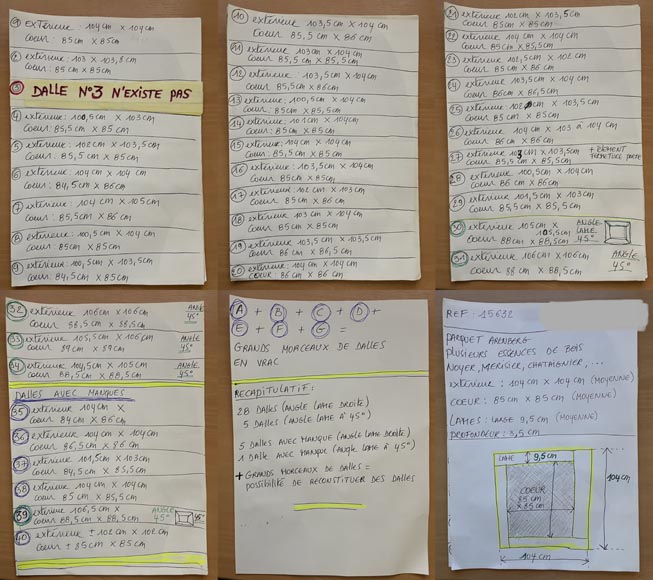 ① extérieur: 104 cm x 104 cm
Coeur: 85 cm x 85 cm
② extérieur: 103 x 103,8 cm
Coeur: 85 cm x 85 cm
③ DALLE N°3 N'EXISTE PAS
④ extérieur: 100,5 cm x 103 cm
Coeur: 85,5 cm x 85 cm
⑤ extérieur: 102 cm x 103,5 cm
Coeur: 85,5 cm x 85 cm
⑥ extérieur: 104 cm x 104 cm
Coeur: 84,5 cm x 86 cm
⑦ extérieur: 104 cm x 105 cm
Coeur: 85,5 cm x 86 cm
⑧ extérieur: 100,5 cm x 104 cm
Coeur: 85 cm x 85 cm
⑨ extérieur: 100,5 cm x 103,5 cm
Coeur: 84,5 cm x 85 cm
⑩ extérieur: 103,5 cm x 104 cm
Coeur: 85,5 cm x 86 cm
⑪ extérieur: 103 cm x 104 cm
Coeur: 85,5 cm x 85,5 cm
⑫ extérieur: 103,5 cm x 104 cm
Coeur: 85 cm x 86 cm
⑬ extérieur: 100,5 cm x 104 cm
Coeur: 85 cm x 85,5 cm
⑭ extérieur: 101 cm x 104 cm
Coeur: 85 cm x 85,5 cm
⑮ extérieur: 104 cm x 104 cm
Coeur: 85,5 cm x 85 cm
⑯ extérieur: 103,5 cm x 104 cm
Coeur: 85 cm x 85 cm
⑰ extérieur: 102 cm x 103 cm
Coeur: 85 cm x 86 cm
⑱ extérieur: 103 cm x 104 cm
Coeur: 85 cm x 85 cm
⑲ extérieur: 103,5 cm x 103,5 cm
Coeur: 86 cm x 86 cm
⑳ extérieur: 104 cm x 104 cm
Coeur: 86 cm x 86 cm
21 extérieur 102 cm x 103,5 cm
Coeur 85 cm x 85 cm
22 extérieur 104 cm x 104 cm
Coeur 85 cm x 85,5 cm
23 extérieur 102,5 cm x 102 cm
Coeur 85 cm x 86 cm
24 extérieur 103,5 cm x 104 cm
Coeur 86 cm x 86 cm
25 extérieur 102 cm x 103,5 cm
Coeur 85 cm x 85 cm
26 extérieur 104 cm x 103 à 104 cm
Coeur 86 cm x 86 cm
27 extérieur 103 cm x 103,5 cm + ELEMENT FERMETURE PORTE
Coeur 85,5 cm x 85,5 cm
28 extérieur 100,5 cm x 104 cm
Coeur 86 cm x 86 cm
29 extérieur 101,5 cm x 103 cm
Coeur 85,5 cm x 85,5 cm
30 extérieur 105 cm x 105,5 cm ANGLE LAME 45°
Coeur 88 cm x 88,5 cm
31 extérieur 106 cm x 106 cm ANGLE 45°
Coeur 88 cm x 88,5 cm
32 extérieur 106 cm x 106 cm ANGLE 45°
Coeur 88,5 cm x 88,5 cm
33 extérieur 105,5 cm x 106 cm ANGLE 45°
Coeur 89 cm x 89 cm
34 extérieur 104,5 cm x 105 cm ANGLE 45°
Coeur 88,5 cm x 88,5 cm
DALLES AVEC MANQUES
35 extérieur 104 cm x
Coeur 84 cm x 86 cm
36 extérieur 104 cm x 104 cm
Coeur 86,5 cm x 86 cm
37 extérieur 101,5 cm x 103 cm
Coeur 84,5 cm x 85,5 cm
38 extérieur 104 cm x 104 cm
Coeur 85 cm x 85,5 cm
39 extérieur 106,5 cm x ANGLE 45° 45°
Coeur 88,5 cm x 88,5 cm
40 extérieur ± 102 cm x 102 cm
Coeur ± 85 cm x 85 cm
A + B + C + D +
E + F + G =
GRANDS MORCEAUX DE DALLES
EN VRAC
RECAPITULATIF:
28 DALLES (ANGLE LAME DROITE)
5 DALLES (ANGLE LAME à 45°)
5 DALLES AVEC MANQUE (ANGLE LAME DROITE)
1 DALLE AVEC MANQUE (ANGLE LAME à 45°)
+ GRANDS MORCEAUX DE DALLES =
POSSIBILITÉ DE RECONSTITUER DES DALLES
REF: 15632
PARQUET ARENBERG
PLUSIEURS ESSENCES DE BOIS
NOYER, MERISIER, CHATAIGNIER, ...
EXTÉRIEUR: 104 cm x 104 cm (MOYENNE)
COEUR: 85 cm x 85 cm (MOYENNE)
LAMES: LARGE 9,5 cm (MOYENNE)
PROFONDEUR: 3,5 cm
LAME 9,5 cm
COEUR
85 cm
x 85 cm
104 cm
104 cm